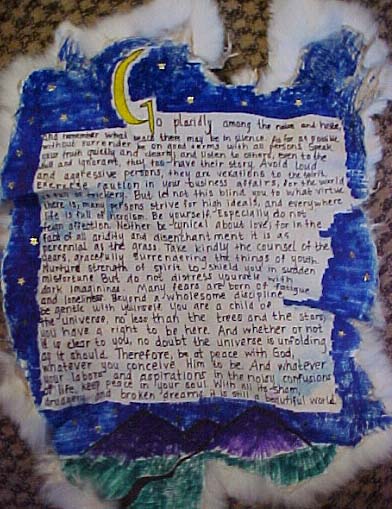 Go placidly among the noise and haste,
and remember what peace there may be in silence. As far as possible
without surrender be on good terms with all persons. Speak
your truth quietly and clearly; and listen to others, even to the
dull and ignorant, they too have their story. Avoid loud
and aggressive persons, they are vexations to the spirit.
Exercise caution in your business affairs, for the world
is full of trickery. But let not this blind you to what virtue
there is, many persons strive for high ideals, and everywhere
life is full of heroism. Be yourself. Especially do not
feign affection. Neither be cynical about love, for in the
face of all aridity and disenchantment it is as
perennial as the grass. Take kindly the counsel of the
years, gracefully surrendering the things of youth.
Nurture strength of spirit to shield you in sudden
misfortune. But do not distress yourself with
dark imaginings. Many fears are born of fatigue
and loneliness. Beyond a wholesome discipline,
be gentle with yourself. You are a child of
the universe, no less than the trees and the stars;
you have a right to be here. And whether or not
it is clear to you, no doubt the universe is unfolding
as it should. Therefore, be at peace with God,
whatever you conceive Him to be. And whatever
your labors and aspirations in the noisy confusions
of life, keep peace in your soul. With all its sham,
drudgery and broken dreams it is still a beautiful world.